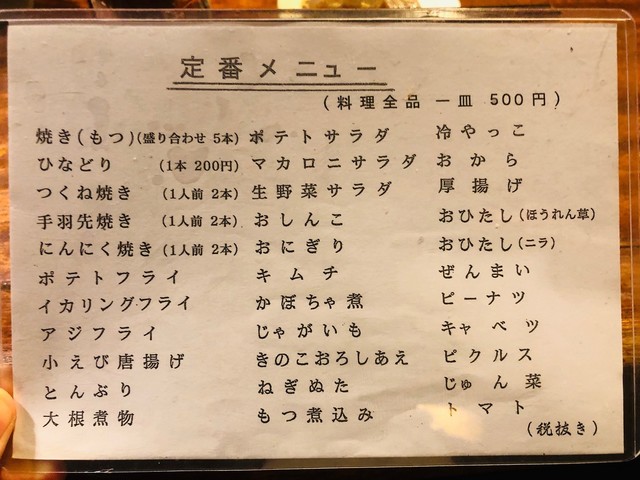 定番メニュー
(料理全品 一皿 500円)
焼き(もつ)(盛り合わせ 5本)
ひなどり (1本 200円)
つくね焼き (1人前 2本)
手羽先焼き (1人前 2本)
にんにく焼き (1人前 2本)
ポテトフライ
イカリングフライ
アジフライ
小えび唐揚げ
とんぶり
大根煮物
ポテトサラダ
マカロニサラダ
生野菜サラダ
おしんこ
おにぎり
キムチ
かぼちゃ煮
じゃがいも
きのこおろしあえ
ねぎぬた
もつ煮込み
冷やっこ
おから
厚揚げ
おひたし(ほうれん草)
おひたし(ニラ)
ぜんまい
ピーナツ
キャベツ
ピクルス
じゅん菜
トマト
(税抜き)